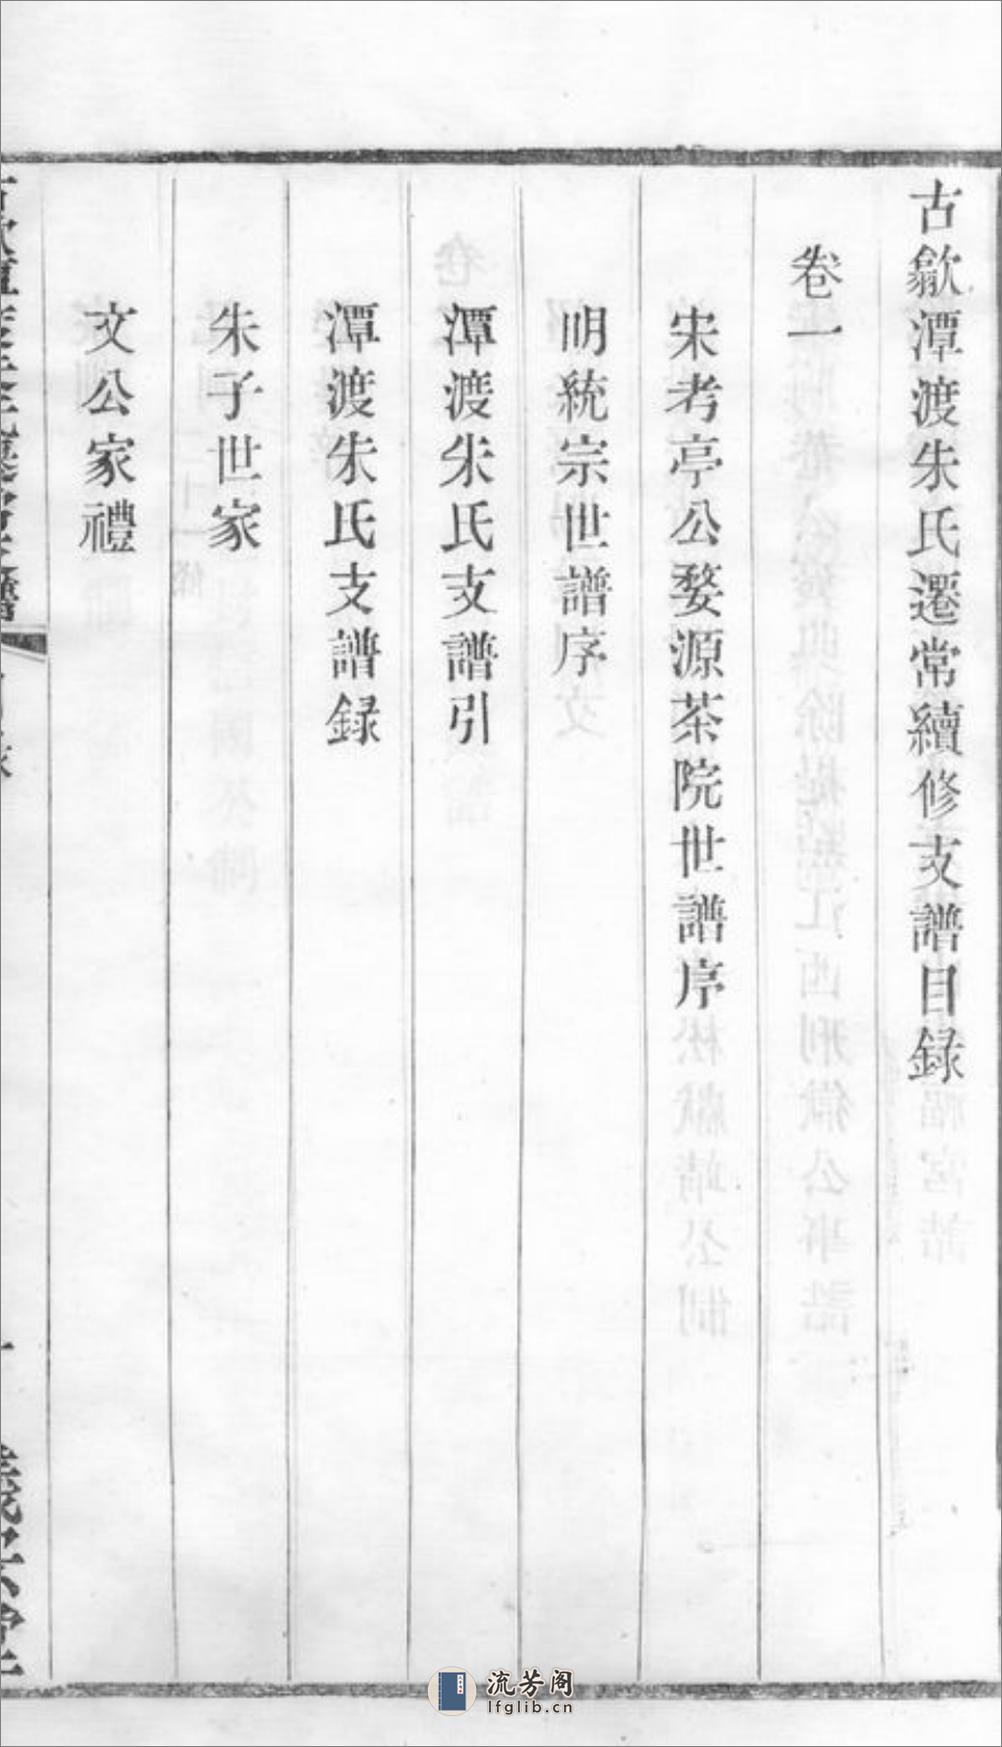 古歙潭渡朱氏遷常續修支譜目録
卷一
宋考亭公婺源茶院世譜序
明統宗世譜序
潭渡朱氏支譜引
潭渡朱氏支譜録
朱子世家
文公家禮
流芳阁
lfglib.cn